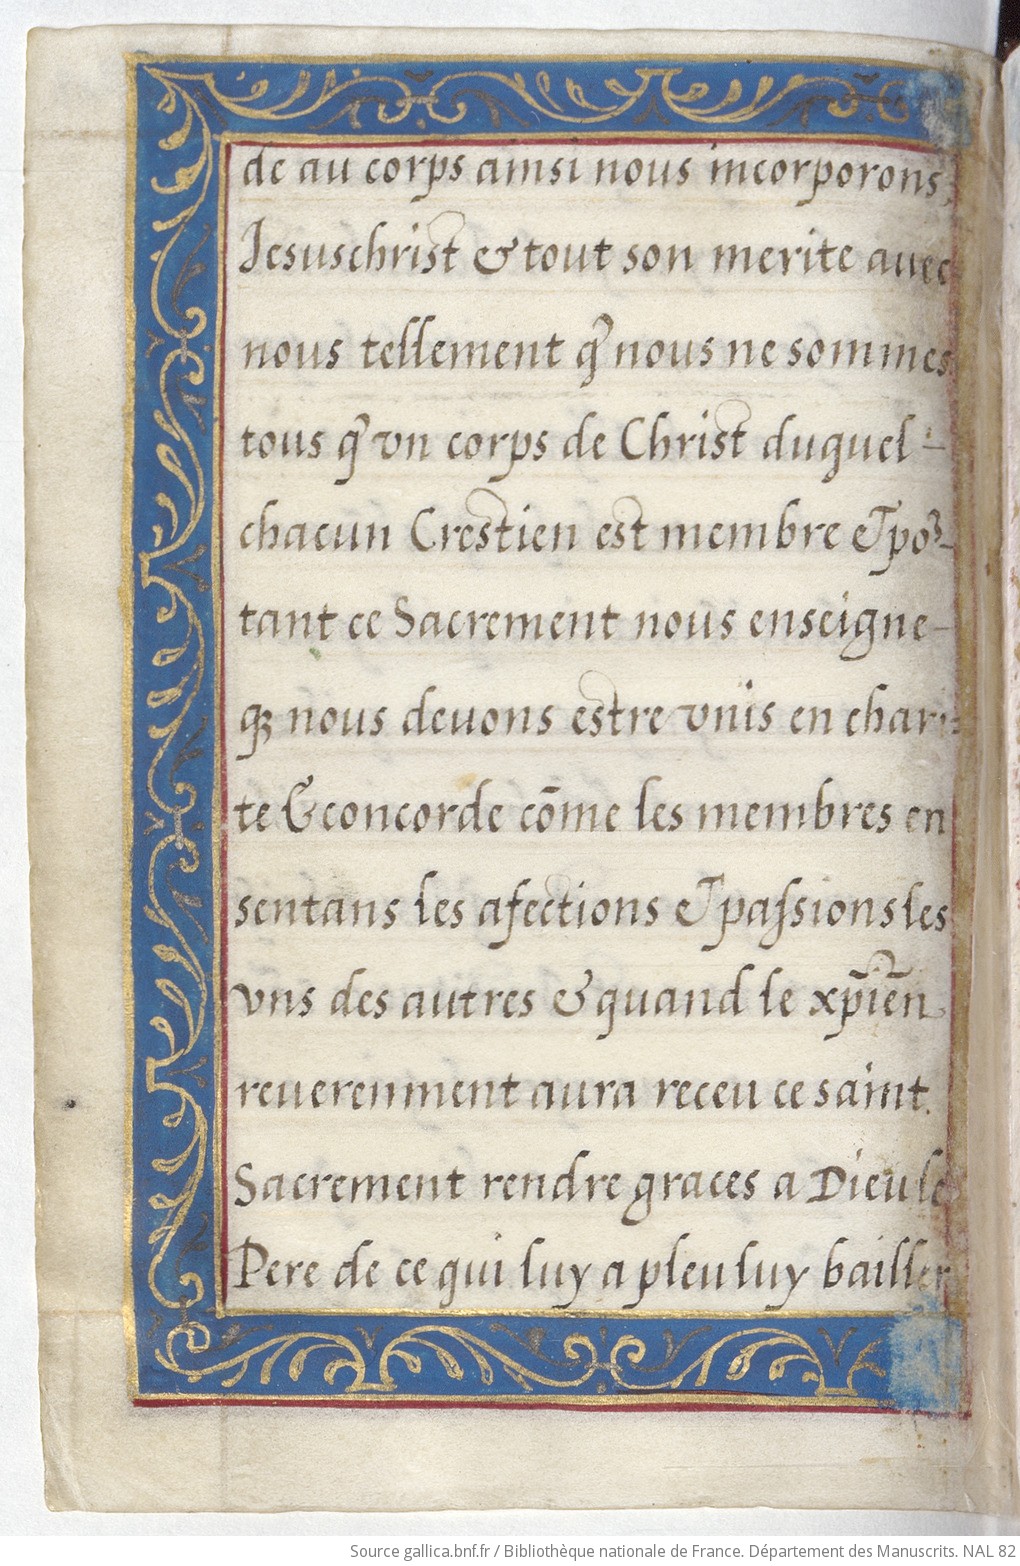 de au corps ainsi nous incorporons
Jesuschrist & tout son merite auec
nous tellement q̃ nous ne sommes
tous q̃ vn corps de Christ duquel -
chacun Crestien est membre & poᵣ-
tant ce Sacrement nous enseigne-
qꝫ nous deuons estre vnis en chari-
te & concorde cõme les membres en
sentans les afections & paſsions les
vns des autres & quand le xp̃iẽn
reuerenment aura receu ce saint.
Sacrement rendre graces a Dieu le
Pere de ce qui luy a pleu luy bailler
Source gallica.bnf.fr / Bibliothèque nationale de France. Département des Manuscrits. NAL 82